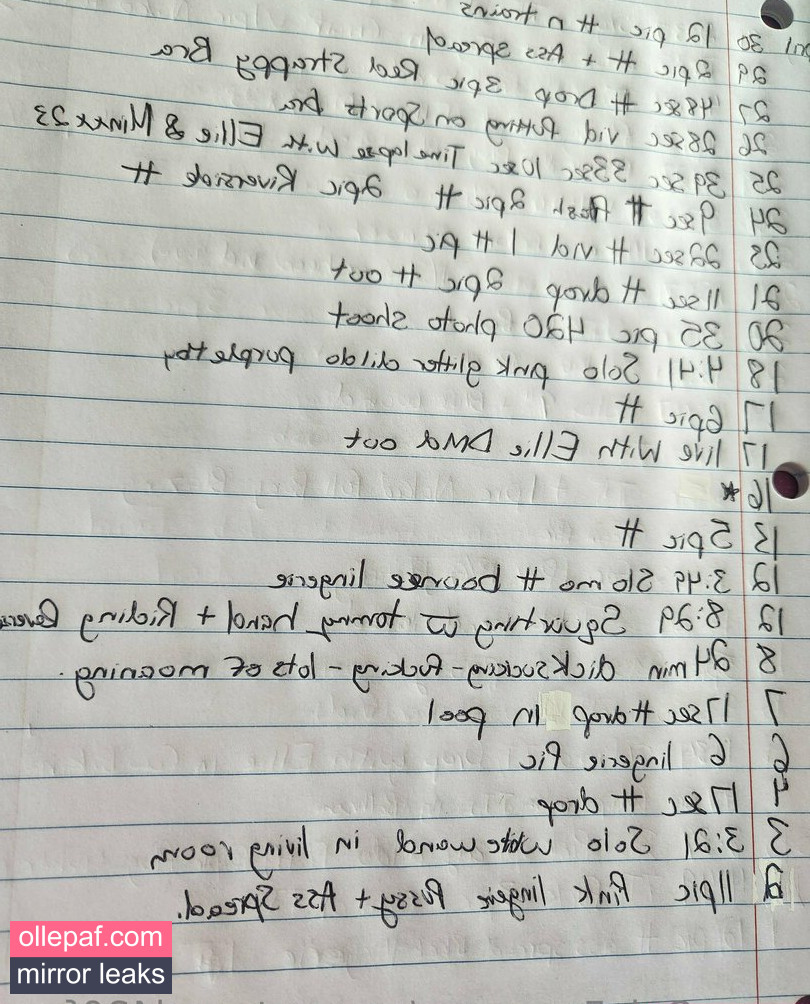 30 12 pic #
29 2pic # + Ass spread
27 48sec # Drop 3pic Red Strappy Bra
26 28sec vid putting on Sports bra
25 39 sec 33sec 10sec Time lapse with Ellie & Minxx23
24 9sec # flash 2pic # 2pic Riverside #
22 29sec # vid 1 # pic
21 11sec # drop 2pic # out
20 35 pic 420 photo shoot
18 4:41 Solo pink glitter dildo purple toy
17 6pic #
17 live with Ellie DMd out
16 *
13 5pic #
12 3:49 Slo mo # bounce lingerie
12 8:29 Squirting w tommy hand + Riding
8 24min dicksucking - fucking - lots of moaning.
7 17sec # drop in pool
6 6 lingerie pic
4 17sec # drop
3 3:21 Solo white wand in living room
2 11pic Pink lingerie Pussy + Ass Spread.
ollepaf.com
mirror leaks